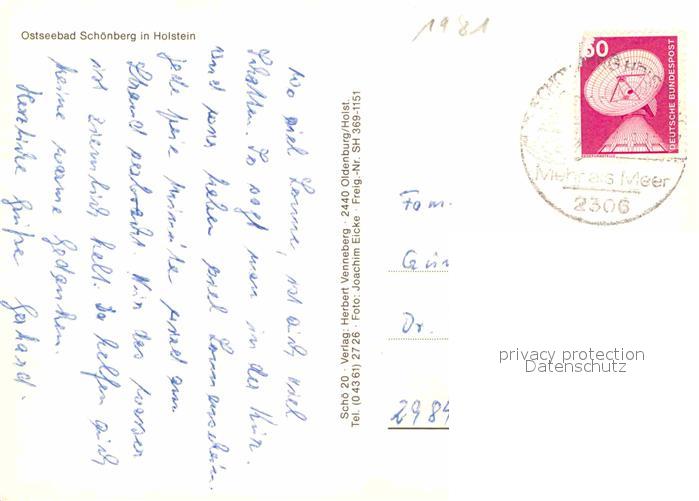 Ostseebad Schönberg in Holstein
1981
Wo viel Sonne, ist auch viel
Schatten. So sagt man in der Kür.
und wir haben viel Sonnenschein.
jede freie Minute wird am
Strand verbracht. Nur das Wasser
ist ziemlich kalt. Da helfen auch
keine warme Gedanken.
Herzliche Grüße Gerhard.
Schö 20 · Verlag: Herbert Venneberg · 2440 Oldenburg/Holst.
Tel. (0 43 61) 27 26 · Foto: Joachim Eicke Freig.-Nr. SH 369-1151
60
DEUTSCHE BUNDESPOST
Mehr als Meer
2306
Fam.
Gün
Dr.
2984
privacy protection
Datenschutz